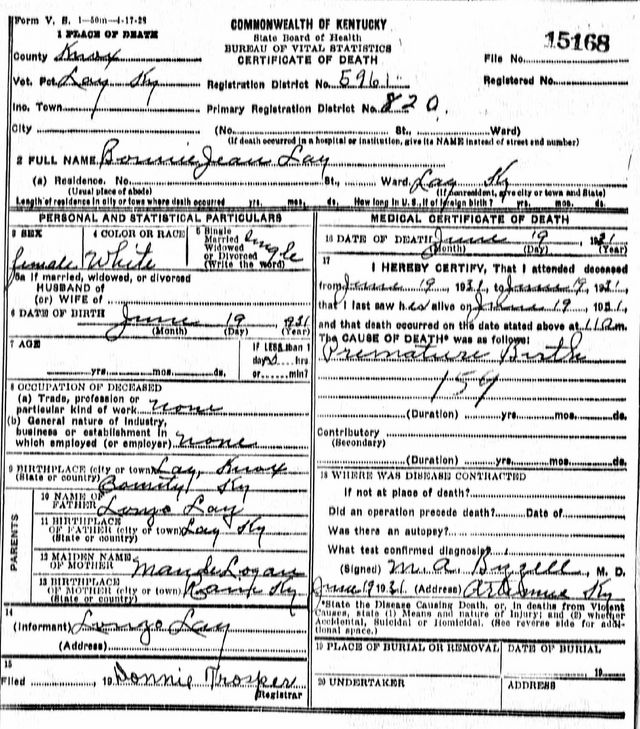 Form V. S. 1—50m—4-17-28
1 PLACE OF DEATH
COMMONWEALTH OF KENTUCKY
State Board of Health
BUREAU OF VITAL STATISTICS
CERTIFICATE OF DEATH
15168
County Knox
File No.
Vot. Pct. Lay Ky
Registration District No. 5961
Registered No.
Inc. Town
Primary Registration District No. 820
City (No. St., Ward)
(If death occurred in a hospital or institution, give its NAME instead of street and number)
2 FULL NAME Bonnie Jean Lay
(a) Residence. No. St., Ward. Lay Ky
(Usual place of abode) (If nonresident, give city or town and State)
Length of residence in city or town where death occurred yrs. mos. ds. How long in U. S., if of foreign birth? yrs. mos. ds.
PERSONAL AND STATISTICAL PARTICULARS
3 SEX female
4 COLOR OR RACE White
5 Single Married Widowed or Divorced (Write the word) Single
5a If married, widowed, or divorced
HUSBAND of
(or) WIFE of
6 DATE OF BIRTH June 19 1931
(Month) (Day) (Year)
7 AGE
yrs. mos. ds.
IF LESS than 1
day hrs
or min?
8 OCCUPATION OF DECEASED
(a) Trade, profession or
particular kind of work none
(b) General nature of Industry,
business or establishment in
which employed (or employer) none
9 BIRTHPLACE (city or town) Lay, Knox
(State or country) County Ky
PARENTS
10 NAME OF
FATHER Lonzo Lay
11 BIRTHPLACE
OF FATHER (city or town) Lay Ky
(State or country)
12 MAIDEN NAME
OF MOTHER Maude Logan
13 BIRTHPLACE
OF MOTHER (city or town) Ky
(State or country)
14
(Informant) Lonzo Lay
(Address)
15
Filed 19 Donnie Trosper
Registrar
MEDICAL CERTIFICATE OF DEATH
16 DATE OF DEATH June 19 1931
(Month) (Day) (Year)
17
I HEREBY CERTIFY, That I attended deceased
from June 19 1931, to June 19, 1931,
that I last saw her alive on June 19 1931,
and that death occurred on the date stated above at 11 a m.
The CAUSE OF DEATH* was as follows:
Premature Birth
159
(Duration) yrs. mos. ds.
Contributory
(Secondary)
(Duration) yrs. mos. ds.
18 WHERE WAS DISEASE CONTRACTED
If not at place of death?
Did an operation precede death? Date of
Was there an autopsy?
What test confirmed diagnosis?
(Signed) M. A. , M. D.
June 19 1931 (Address) Artemus Ky
*State the Disease Causing Death, or, in deaths from Violent
Causes, state (1) Means and nature of Injury; and (2) whether
Accidental, Suicidal or Homicidal. (See reverse side for addi-
tional space.)
19 PLACE OF BURIAL OR REMOVAL
DATE OF BURIAL
19
20 UNDERTAKER
ADDRESS